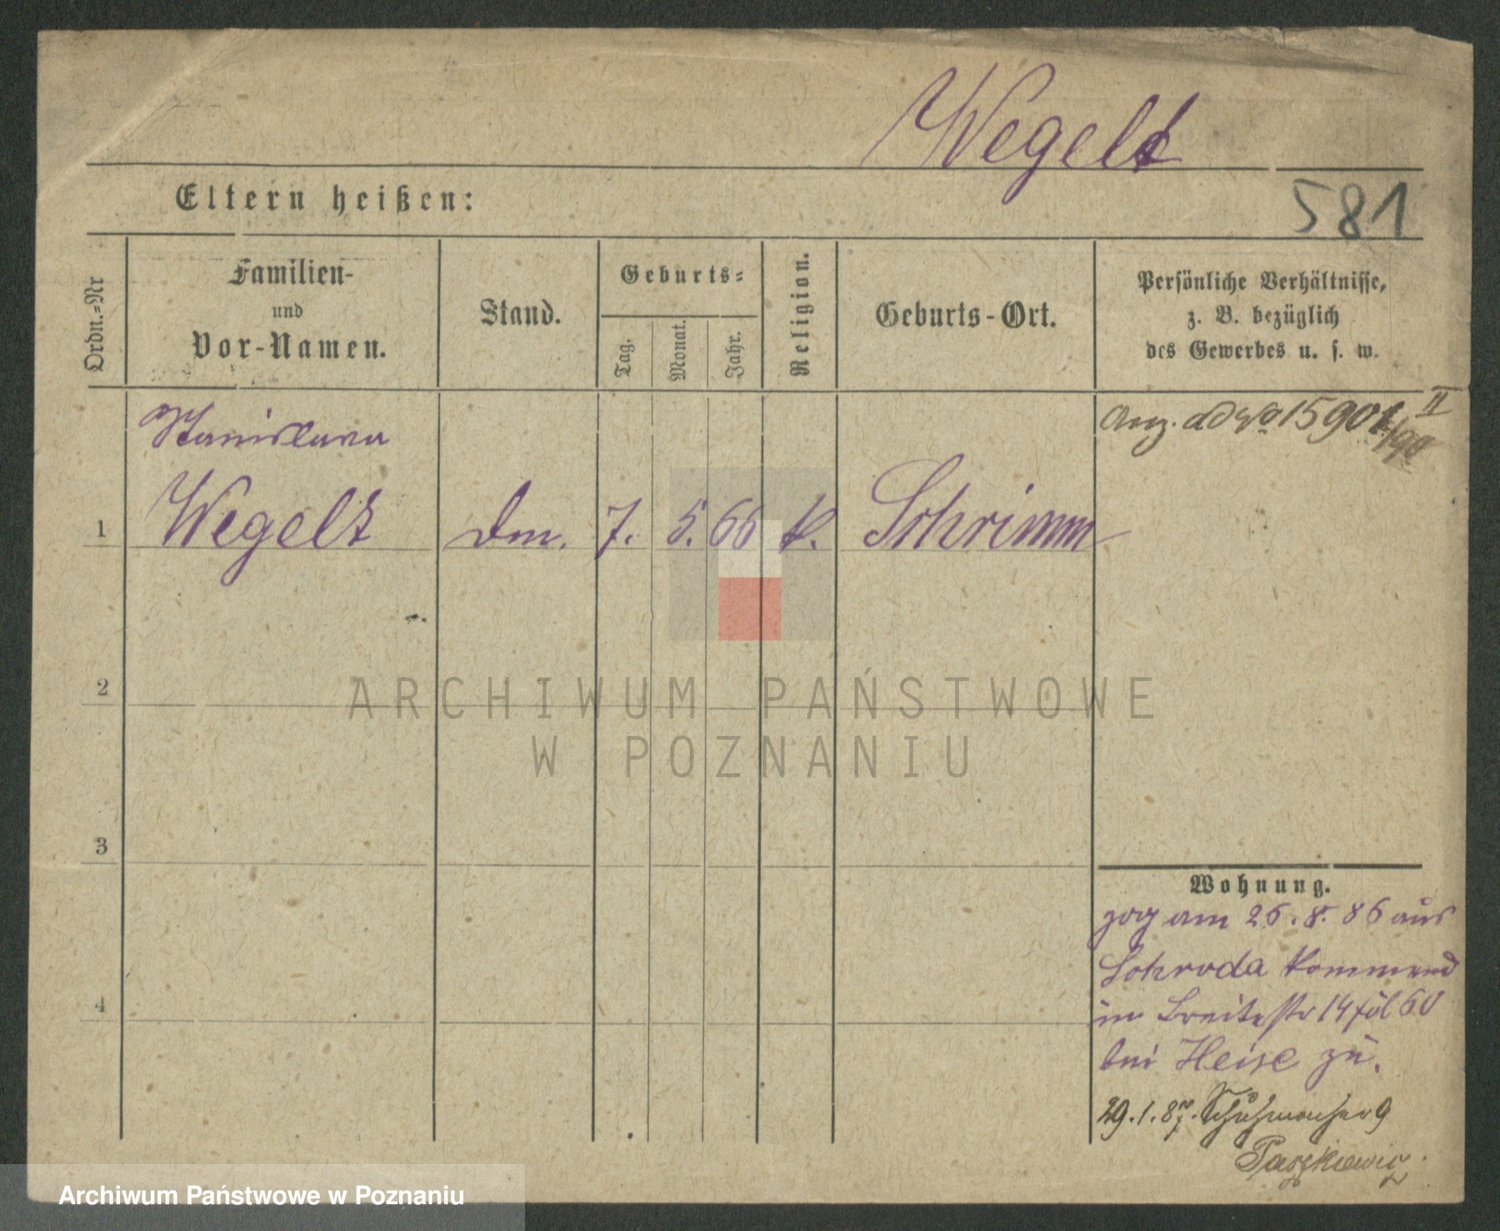 Wegelt
Eltern heißen:
581
Ordn.=Nr
Familien-
und
Vor-Namen.
Stand.
Geburts=
Tag.
Monat.
Jahr.
Religion.
Geburts-Ort.
Persönliche Verhältnisse,
z. B. bezüglich
des Gewerbes u. s. w.
Stanislawa
Anz. ad No 15901/90 II
1 Wegelt Dm. 7. 5. 66 k. Schrimm
2
ARCHIWUM PAŃSTWOWE
W POZNANIU
3
Wohnung.
zog am 26. 8. 86 aus
Schroda kommend
in Breitestr 14 fol 60
4
bei Heise zu.
29. 1. 87. Schuhmacher 9
Paszkiewicz
Archiwum Państwowe w Poznaniu